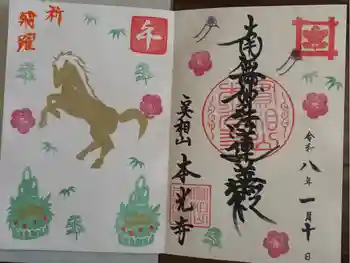 祈
飛躍
午
南無妙法蓮華経
実相山
本光寺
令和八年一月十日